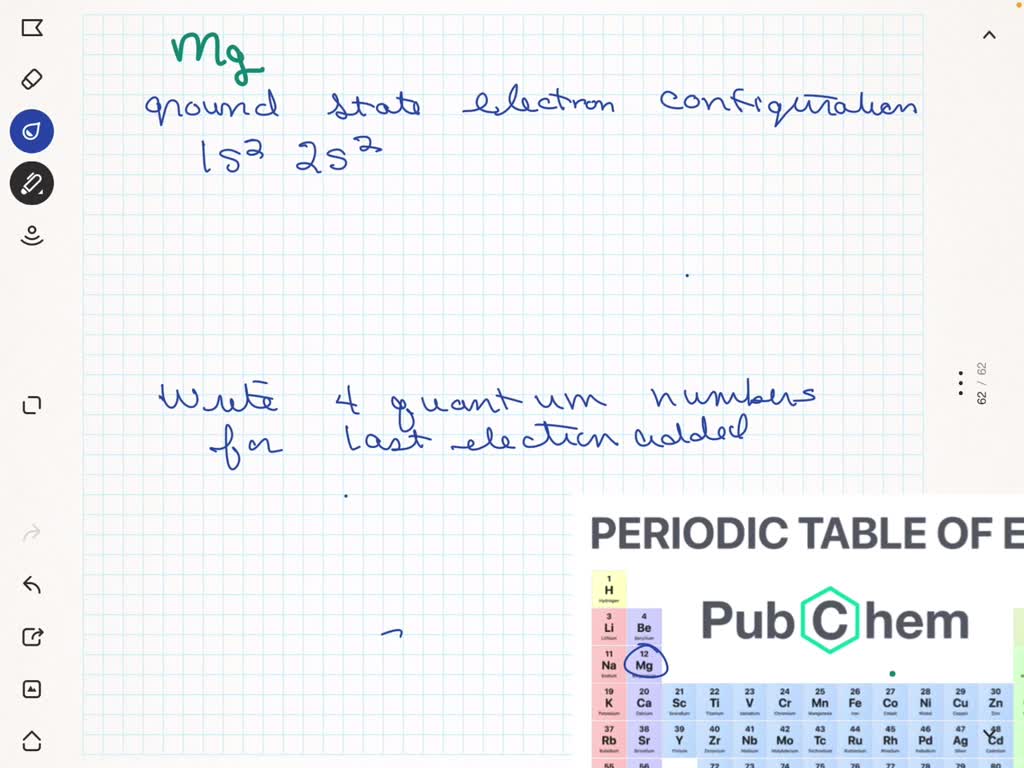 Mg
ground state electron configuration
1s² 2s²
Write 4 quantum numbers
for last electron added
62 / 62
PERIODIC TABLE OF E
PubChem
1
H
Hydrogen
3 4
Li Be
Lithium Beryllium
11 12
Na Mg
Sodium
19 20 21 22 23 24 25 26 27 28 29 30
K Ca Sc Ti V Cr Mn Fe Co Ni Cu Zn
Potassium Calcium Scandium Titanium Vanadium Chromium Manganese Iron Cobalt Nickel Copper Zinc
37 38 39 40 41 42 43 44 45 46 47 48
Rb Sr Y Zr Nb Mo Tc Ru Rh Pd Ag Cd
Rubidium Strontium Yttrium Zirconium Niobium Molybdenum Technetium Ruthenium Rhodium Palladium Silver Cadmium
55 56 72 73 74 75 76 77 78 79 80